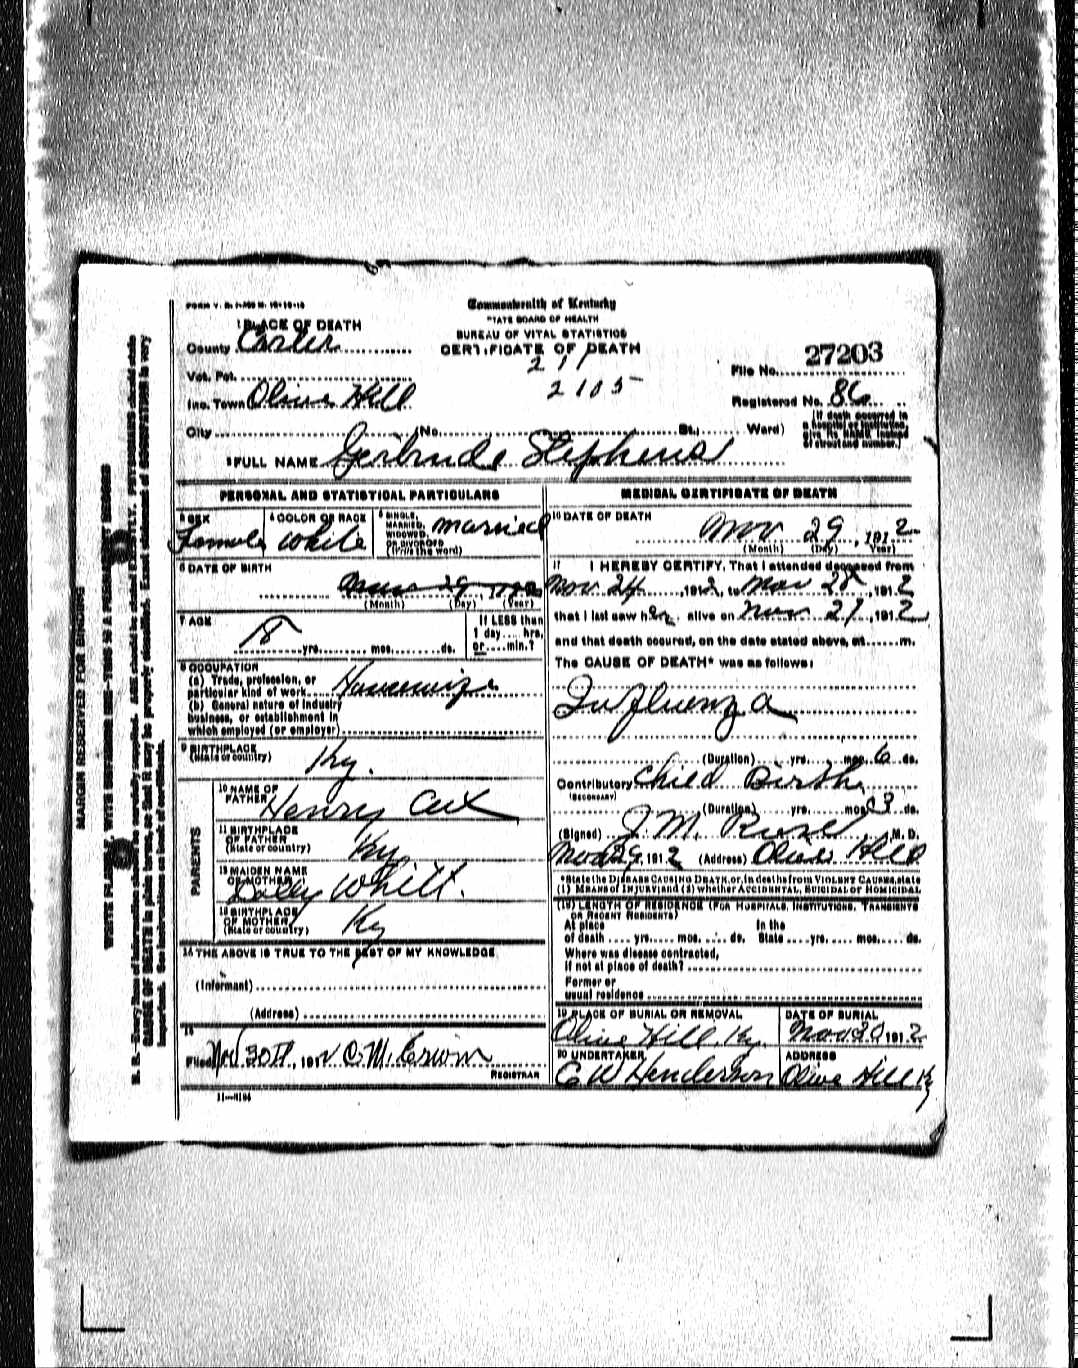 Commonwealth of Kentucky
STATE BOARD OF HEALTH
BUREAU OF VITAL STATISTICS
CERTIFICATE OF DEATH
1 PLACE OF DEATH
County Carter
Vot. Pct.
Inc. Town Olive Hill
City (No. St., Ward)
211
2105
File No. 27203
Registered No. 86
(If death occurred in a hospital or institution, give its NAME instead of street and number.)
2 FULL NAME Gertrude Stephens
PERSONAL AND STATISTICAL PARTICULARS
3 SEX Female
4 COLOR OR RACE White
5 SINGLE, MARRIED, WIDOWED, OR DIVORCED (Write the word) married
6 DATE OF BIRTH
(Month) (Day) (Year)
7 AGE 18
yrs. mos. ds.
If LESS than 1 day.... hrs, or....min.?
8 OCCUPATION
(a) Trade, profession, or particular kind of work Housewife
(b) General nature of industry business, or establishment in which employed (or employer)
9 BIRTHPLACE (State or country) Ky.
PARENTS
10 NAME OF FATHER Henry Cox
11 BIRTHPLACE OF FATHER (State or country) Ky
12 MAIDEN NAME OF MOTHER Whitt.
13 BIRTHPLACE OF MOTHER (State or country) Ky
14 THE ABOVE IS TRUE TO THE BEST OF MY KNOWLEDGE
(Informant)
(Address)
15
Filed Nov 30th, 191 C. M. Erwin
REGISTRAR
MEDICAL CERTIFICATE OF DEATH
16 DATE OF DEATH
Nov 29, 1912
(Month) (Day) (Year)
17 I HEREBY CERTIFY, That I attended deceased from
Nov 24, 1912, to Nov 28, 1912
that I last saw her alive on Nov 27, 1912
and that death occured, on the date stated above, at......m.
The CAUSE OF DEATH* was as follows:
Influenza
(Duration) yrs. mos. 6 ds.
Contributory Child Birth
(SECONDARY)
(Duration) yrs. mos. 3 ds.
(Signed) J. M. Rose, M. D.
Nov 29, 1912 (Address) Olive Hill
*State the DISEASE CAUSING DEATH, or, in deaths from VIOLENT CAUSES, state (1) MEANS OF INJURY; and (2) whether ACCIDENTAL, SUICIDAL or HOMICIDAL
(18) LENGTH OF RESIDENCE (FOR HOSPITALS, INSTITUTIONS, TRANSIENTS OR RECENT RESIDENTS)
At place of death .... yrs..... mos. .... ds. In the State ....yrs. .... mos..... ds.
Where was disease contracted, if not at place of death?
Former or usual residence
19 PLACE OF BURIAL OR REMOVAL Olive Hill, Ky.
DATE OF BURIAL Nov 30 1912
20 UNDERTAKER C W Henderson
ADDRESS Olive Hill Ky
MARGIN RESERVED FOR BINDING